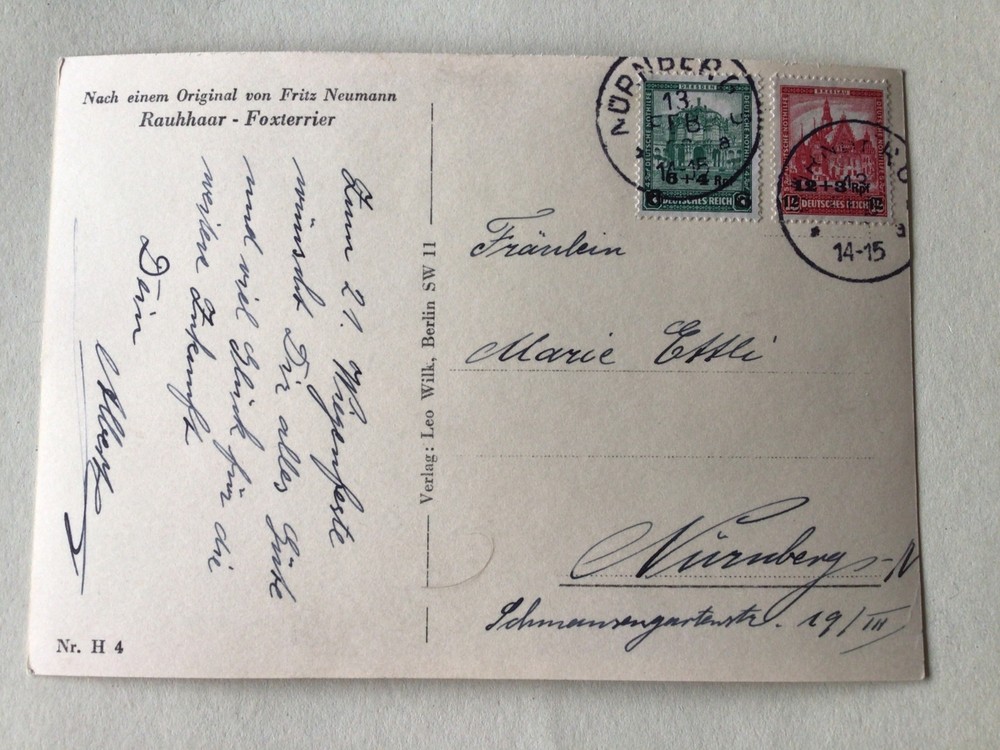 Nach einem Original von Fritz Neumann
Rauhhaar - Foxterrier
Zum 21. Wiegenfeste
wünscht Dir alles Gute
und viel Glück für die
weitere Zukunft
Dein
Albert
Nr. H 4
Verlag: Leo Wilk, Berlin SW 11
NÜRNBERG
13.
14-15
DRESDEN
6+4 Rpf
DEUTSCHES REICH
BRESLAU
12+3 Rpf
DEUTSCHES REICH
13
14-15
Fräulein
Marie Ettli
Nürnberg-N
Schmausengartenstr. 19/III